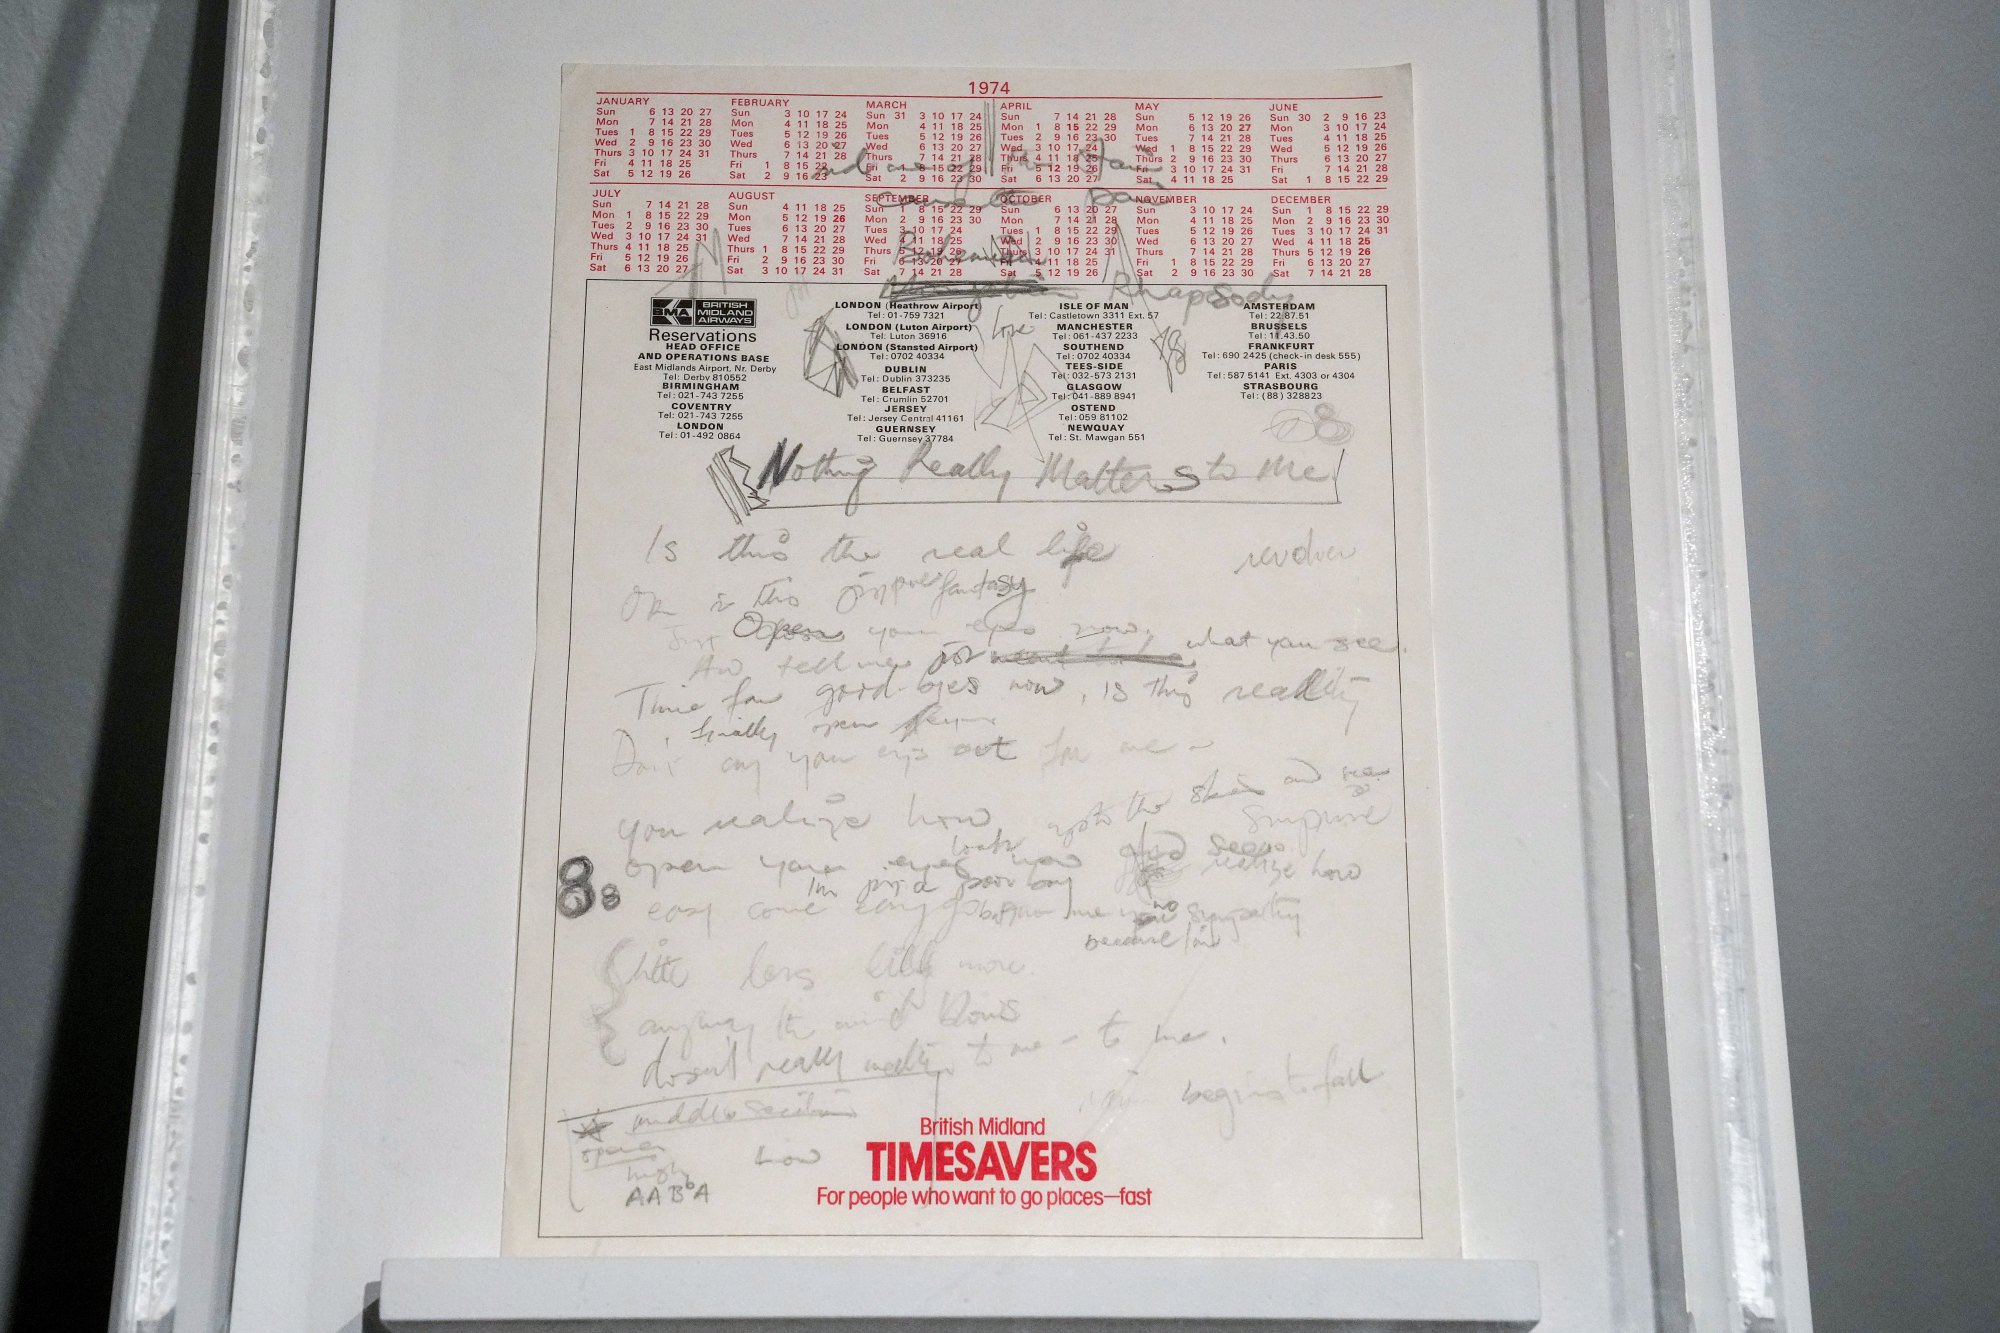 1974
JANUARY
Sun 6 13 20 27
Mon 7 14 21 28
Tues 1 8 15 22 29
Wed 2 9 16 23 30
Thurs 3 10 17 24 31
Fri 4 11 18 25
Sat 5 12 19 26
FEBRUARY
Sun 3 10 17 24
Mon 4 11 18 25
Tues 5 12 19 26
Wed 6 13 20 27
Thurs 7 14 21 28
Fri 1 8 15 22
Sat 2 9 16 23
MARCH
Sun 31 3 10 17 24
Mon 4 11 18 25
Tues 5 12 19 26
Wed 6 13 20 27
Thurs 7 14 21 28
Fri 1 8 15 22 29
Sat 2 9 16 23 30
APRIL
Sun 7 14 21 28
Mon 1 8 15 22 29
Tues 2 9 16 23 30
Wed 3 10 17 24
Thurs 4 11 18 25
Fri 5 12 19 26
Sat 6 13 20 27
MAY
Sun 5 12 19 26
Mon 6 13 20 27
Tues 7 14 21 28
Wed 1 8 15 22 29
Thurs 2 9 16 23 30
Fri 3 10 17 24 31
Sat 4 11 18 25
JUNE
Sun 30 2 9 16 23
Mon 3 10 17 24
Tues 4 11 18 25
Wed 5 12 19 26
Thurs 6 13 20 27
Fri 7 14 21 28
Sat 1 8 15 22 29
JULY
Sun 7 14 21 28
Mon 1 8 15 22 29
Tues 2 9 16 23 30
Wed 3 10 17 24 31
Thurs 4 11 18 25
Fri 5 12 19 26
Sat 6 13 20 27
AUGUST
Sun 4 11 18 25
Mon 5 12 19 26
Tues 6 13 20 27
Wed 7 14 21 28
Thurs 1 8 15 22 29
Fri 2 9 16 23 30
Sat 3 10 17 24 31
SEPTEMBER
Sun 1 8 15 22 29
Mon 2 9 16 23 30
Tues 3 10 17 24
Wed 4 11 18 25
Thurs 5 12 19 26
Fri 6 13 20 27
Sat 7 14 21 28
OCTOBER
Sun 6 13 20 27
Mon 7 14 21 28
Tues 1 8 15 22 29
Wed 2 9 16 23 30
Thurs 3 10 17 24 31
Fri 4 11 18 25
Sat 5 12 19 26
NOVEMBER
Sun 3 10 17 24
Mon 4 11 18 25
Tues 5 12 19 26
Wed 6 13 20 27
Thurs 7 14 21 28
Fri 1 8 15 22 29
Sat 2 9 16 23 30
DECEMBER
Sun 1 8 15 22 29
Mon 2 9 16 23 30
Tues 3 10 17 24 31
Wed 4 11 18 25
Thurs 5 12 19 26
Fri 6 13 20 27
Sat 7 14 21 28
Bohemian
Rhapsody
BMA BRITISH MIDLAND AIRWAYS
Reservations
HEAD OFFICE
AND OPERATIONS BASE
East Midlands Airport, Nr. Derby
Tel: Derby 810552
BIRMINGHAM
Tel: 021-743 7255
COVENTRY
Tel: 021-743 7255
LONDON
Tel: 01-492 0864
LONDON (Heathrow Airport)
Tel: 01-759 7321
LONDON (Luton Airport)
Tel: Luton 36916
LONDON (Stansted Airport)
Tel: 0702 40334
DUBLIN
Tel: Dublin 373235
BELFAST
Tel: Crumlin 52701
JERSEY
Tel: Jersey Central 41161
GUERNSEY
Tel: Guernsey 37784
ISLE OF MAN
Tel: Castletown 3311 Ext. 57
MANCHESTER
Tel: 061-437 2233
SOUTHEND
Tel: 0702 40334
TEES-SIDE
Tel: 032-573 2131
GLASGOW
Tel: 041-889 8941
OSTEND
Tel: 059 81102
NEWQUAY
Tel: St. Mawgan 551
AMSTERDAM
Tel: 22.87.51
BRUSSELS
Tel: 11.43.50
FRANKFURT
Tel: 690 2425 (check-in desk 555)
PARIS
Tel: 587 5141 Ext. 4303 or 4304
STRASBOURG
Tel: (88) 328823
Nothing Really Matters to Me!
Is this the real life
Or is this just fantasy
Just Open your eyes now.
And tell me what you see.
Time for good-byes now, is this reality
finally open
Don't cry your eyes out for me
up to the skies and see
you realize how surprise
look
open your eyes now and realize how
I'm just a poor boy
easy come easy go no sympathy
because I'm
little less little more
anyway the wind blows
doesn't really matter to me - to me.
begins to fall
middle section
opera
high how
AABbA
88
British Midland
TIMESAVERS
For people who want to go places—fast